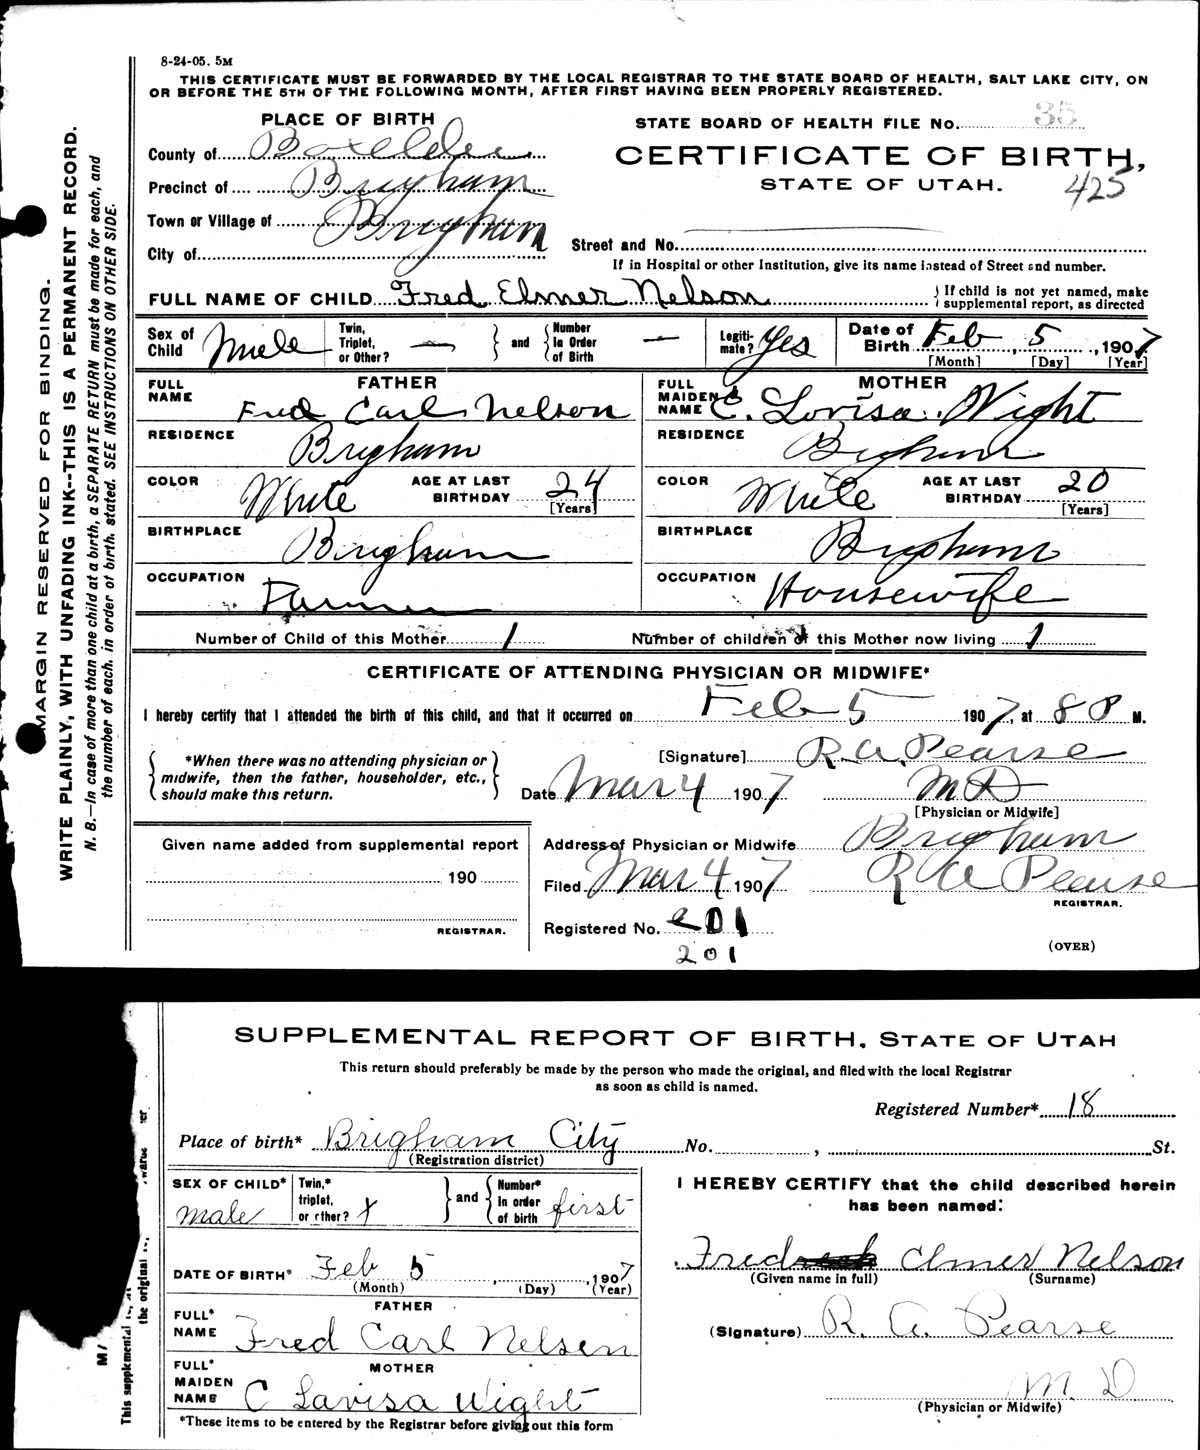 8-24-05. 5M
THIS CERTIFICATE MUST BE FORWARDED BY THE LOCAL REGISTRAR TO THE STATE BOARD OF HEALTH, SALT LAKE CITY, ON
OR BEFORE THE 5TH OF THE FOLLOWING MONTH, AFTER FIRST HAVING BEEN PROPERLY REGISTERED.
PLACE OF BIRTH
STATE BOARD OF HEALTH FILE No. 35
County of Boxelder
CERTIFICATE OF BIRTH,
Precinct of Brigham
STATE OF UTAH.
425
Town or Village of Brigham
City of
Street and No.
If in Hospital or other Institution, give its name instead of Street and number.
FULL NAME OF CHILD Fred Elmer Nelson
If child is not yet named, make
supplemental report, as directed
Sex of Child Male
Twin, Triplet, or Other? —
and
Number In Order of Birth —
Legiti-mate? Yes
Date of Birth Feb 5, 1907
[Month] [Day] [Year]
FATHER
FULL NAME Fred Carl Nelson
RESIDENCE Brigham
COLOR White
AGE AT LAST BIRTHDAY 24
[Years]
BIRTHPLACE Brigham
OCCUPATION Farmer
MOTHER
FULL MAIDEN NAME C. Lovisa Wight
RESIDENCE Brigham
COLOR White
AGE AT LAST BIRTHDAY 20
[Years]
BIRTHPLACE Brigham
OCCUPATION Housewife
Number of Child of this Mother 1
Number of children of this Mother now living 1
CERTIFICATE OF ATTENDING PHYSICIAN OR MIDWIFE*
I hereby certify that I attended the birth of this child, and that it occurred on Feb 5 1907, at 8 P M.
*When there was no attending physician or
midwife, then the father, householder, etc.,
should make this return.
[Signature] R. A. Pearse
Date Mar 4 1907
M D
[Physician or Midwife]
Given name added from supplemental report
190
REGISTRAR.
Address of Physician or Midwife Brigham
Filed Mar 4 1907
R A Pearse
REGISTRAR.
Registered No. 201
201
(OVER)
MARGIN RESERVED FOR BINDING.
WRITE PLAINLY, WITH UNFADING INK--THIS IS A PERMANENT RECORD.
N. B.—In case of more than one child at a birth, a SEPARATE RETURN must be made for each, and
the number of each, in order of birth, stated. SEE INSTRUCTIONS ON OTHER SIDE.
SUPPLEMENTAL REPORT OF BIRTH, STATE OF UTAH
This return should preferably be made by the person who made the original, and filed with the local Registrar
as soon as child is named.
Registered Number* 18
Place of birth* Brigham City No. , St.
(Registration district)
SEX OF CHILD* male
Twin,* triplet, or other?
and
Number* in order of birth first
I HEREBY CERTIFY that the child described herein
has been named:
Fred Elmer Nelson
(Given name in full) (Surname)
DATE OF BIRTH* Feb 5, 1907
(Month) (Day) (Year)
FATHER
FULL* NAME Fred Carl Nelsen
(Signature) R. A. Pearse
MOTHER
FULL* MAIDEN NAME C Lavisa Wight
M. D
(Physician or Midwife)
*These items to be entered by the Registrar before giving out this form
This supplemental
the original